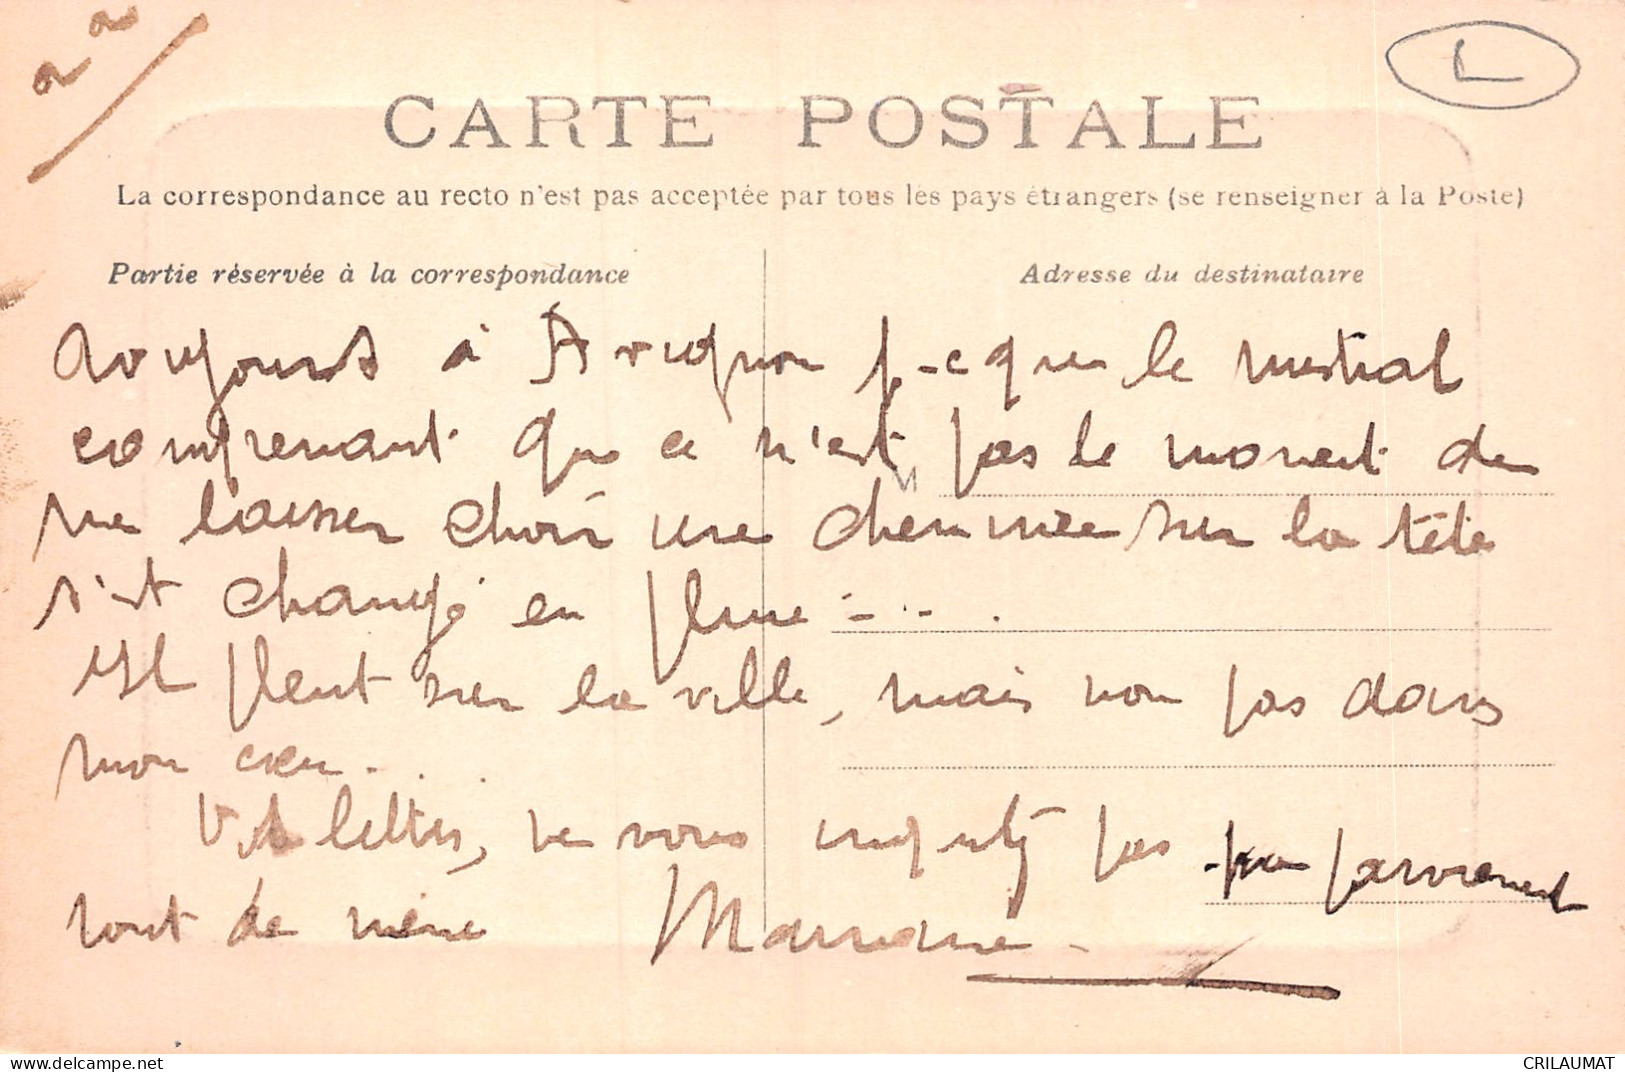 22/
L
CARTE POSTALE
La correspondance au recto n'est pas acceptée par tous les pays étrangers (se renseigner à la Poste)
Partie réservée à la correspondance
Adresse du destinataire
Toujours à Avignon p.-c que le mistral
comprenant que ce n'est pas le moment de
me laisser choir une cheminée sur la tête
s'est changé en pluie - . . .
Il pleut sur la ville, mais non pas dans
mon cœur.
Vos lettres, ne vous inquiétez pas parviennent
tout de même Marianne
www.delcampe.net
CRILAUMAT